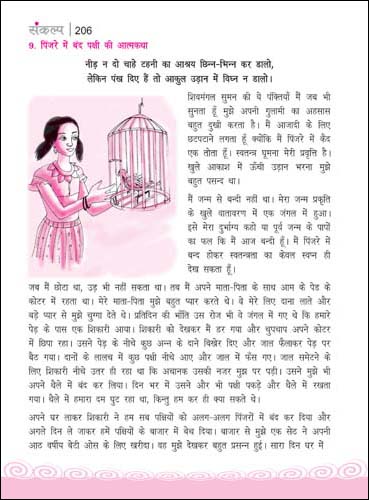 संकल्प | 206
9. पिंजरे में बंद पक्षी की आत्मकथा
नीड़ न दो चाहे टहनी का आश्रय छिन्न-भिन्न कर डालो,
लेकिन पंख दिए हैं तो आकुल उड़ान में विघ्न न डालो।
शिवमंगल सुमन की ये पंक्तियाँ मैं जब भी
सुनता हूँ मुझे अपनी गुलामी का अहसास
बहुत दुखी करता है। मैं आजादी के लिए
छटपटाने लगता हूँ क्योंकि मैं पिंजरे में कैद
एक तोता हूँ। स्वतन्त्र घूमना मेरी प्रवृत्ति है।
खुले आकाश में ऊँची उड़ान भरना मुझे
बहुत पसन्द था।
मैं जन्म से बन्दी नहीं था। मेरा जन्म प्रकृति
के खुले वातावरण में एक जंगल में हुआ।
इसे मेरा दुर्भाग्य कहो या पूर्व जन्म के पापों
का फल कि मैं आज बन्दी हूँ। मैं पिंजरे में
बन्द होकर स्वतन्त्रता का केवल स्वप्न ही
देख सकता हूँ।
जब मैं छोटा था, उड़ भी नहीं सकता था। तब मैं अपने माता-पिता के साथ आम के पेड के
कोटर में रहता था। मेरे माता-पिता मुझे बहुत प्यार करते थे। वे मेरे लिए दाना लाते और
बड़े प्यार से मुझे चुग्गा देते थे। प्रतिदिन की भाँति उस रोज भी वे जंगल में गए थे कि हमारे
पेड़ के पास एक शिकारी आया। शिकारी को देखकर मैं डर गया और चुपचाप अपने कोटर
में छिपा रहा। उसने पेड़ के नीचे कुछ अन्न के दाने बिखेर दिए और जाल फैलाकर पेड़ पर
बैठ गया। दानों के लालच में कुछ पक्षी नीचे आए और जाल में फँस गए। जाल समेटने के
लिए शिकारी नीचे उतर ही रहा था कि अचानक उसकी नजर मुझ पर पड़ी। उसने मुझे भी
अपने थैले में बंद कर लिया। दिन भर में उसने और भी पक्षी पकड़े और थैले में रखता
गया। थैले में हमारा दम घुट रहा था, किन्तु हम कर ही क्या सकते थे।
अपने घर लाकर शिकारी ने हम सब पक्षियों को अलग-अलग पिंजरों में बंद कर दिया और
अगले दिन ले जाकर हमें पक्षियों के बाजार में बेच दिया। बाजार से मुझे एक सेठ ने अपनी
आठ वर्षीय बेटी ओस के लिए खरीदा। वह मुझे देखकर बहुत प्रसन्न हुई। सारा दिन घर में